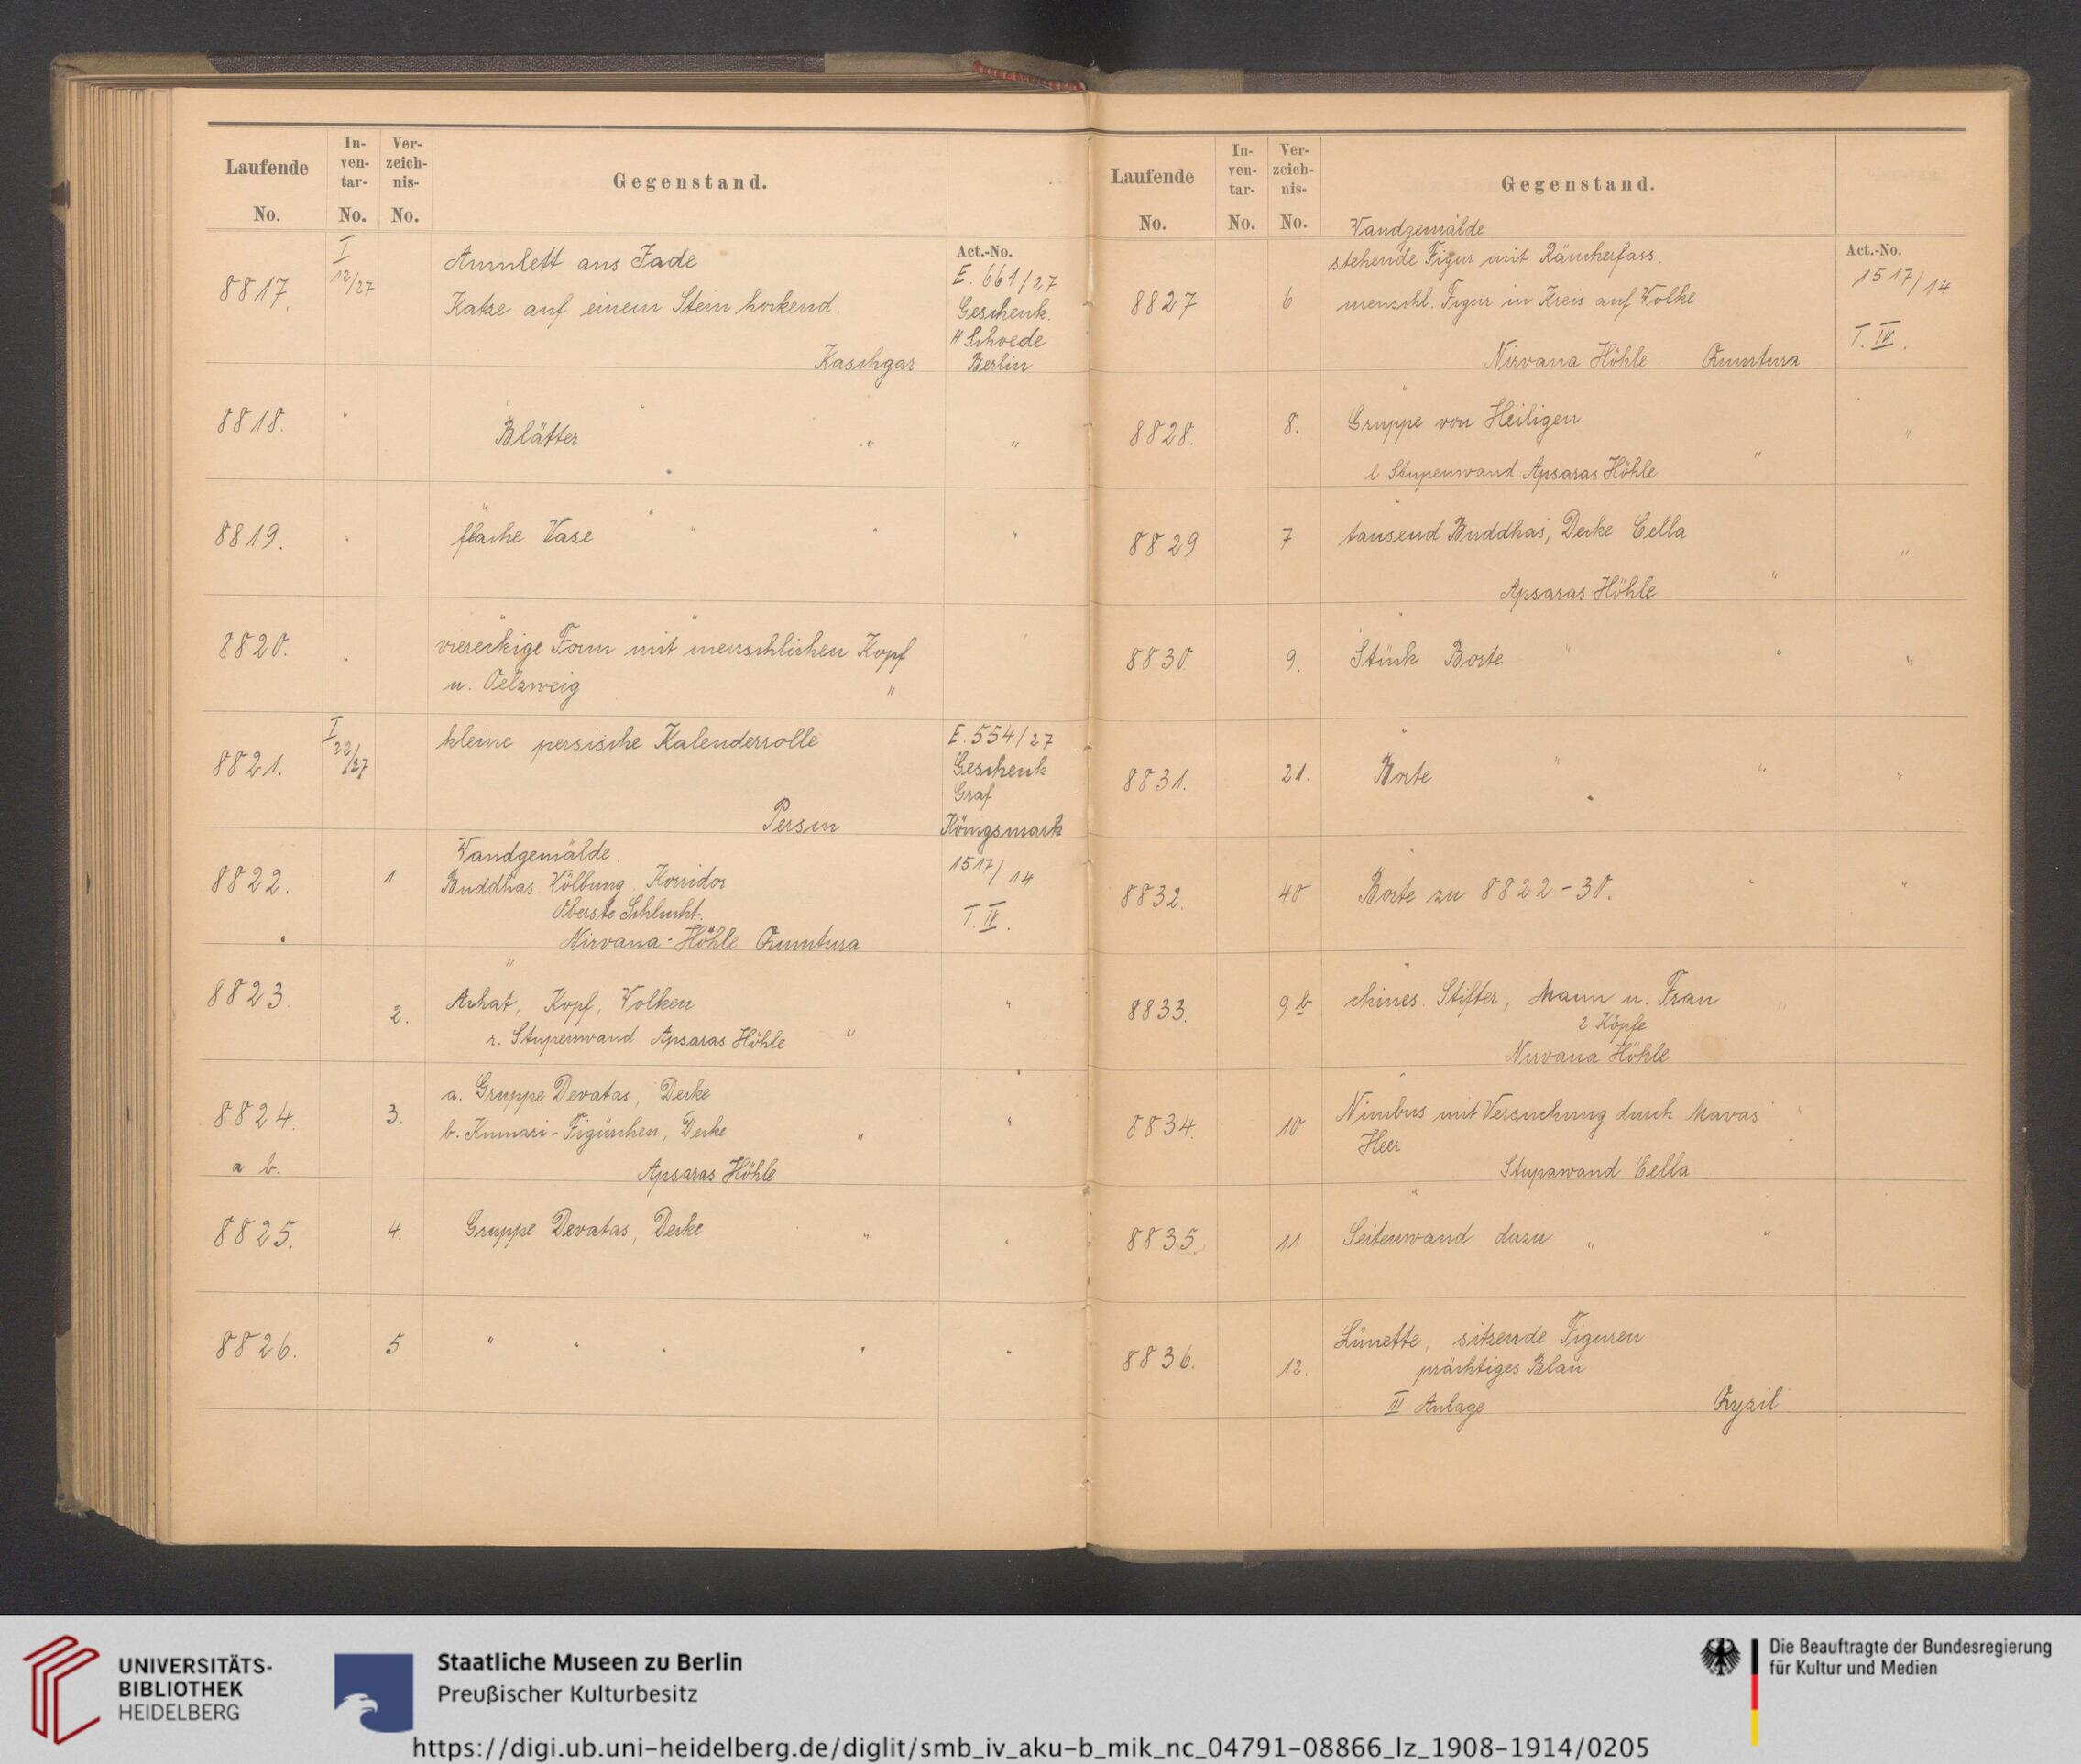 Laufende No.
In-ven-tar- No.
Ver-zeich-nis- No.
Gegenstand.
Act.-No.
8817.
I 12/27
Amulett aus Jade
Katze auf einem Stein hockend.
Kaschgar
E. 661/27
Geschenk.
H Schoede
Berlin
8818. "
Blätter " "
8819. "
flache Vase " " " "
8820. "
viereckige Form mit menschlichen Kopf
u. Oelzweig "
8821.
I 22/27
kleine persische Kalenderrolle
Persien
E. 554/27
Geschenk
Graf
Königsmark
8822. 1
Wandgemälde.
Buddhas Wölbung Korridor
Oberste Schlucht.
Nirvana-Höhle Qumtura
1517/14
T. IV.
8823. 2.
"
Arhat, Kopf, Wolken "
r. Stupenwand Apsaras Höhle "
8824. 3.
a b.
a. Gruppe Devatas, Decke
b. Kumari-Figürchen, Decke " "
Apsaras Höhle
8825. 4.
Gruppe Devatas, Decke " "
8826. 5
" " " " "
Laufende No.
In-ven-tar- No.
Ver-zeich-nis- No.
Gegenstand.
Act.-No.
8827 6
Wandgemälde
stehende Figur mit Räucherfass.
menschl. Figur in Kreis auf Wolke
Nirvana Höhle Qumtura
1517/14
T. IV.
8828. 8.
"
Gruppe von Heiligen "
l Stupenwand Apsaras Höhle "
8829 7
"
tausend Buddhas, Decke Cella "
Apsaras Höhle "
8830. 9.
"
Stück Borte " " "
8831. 21.
"
Borte " " "
8832. 40
"
Borte zu 8822-30. " "
8833. 9b
"
chines. Stifter, Mann u. Frau "
2 Köpfe
Nirvana Höhle
8834. 10
"
Nimbus mit Versuchung durch Mavas "
Heer
Stupawand Cella
8835. 11
"
Seitenwand dazu " "
8836. 12.
Lünette, sitzende Figuren
prächtiges Blau
III Anlage Qyzil
UNIVERSITÄTS-
BIBLIOTHEK
HEIDELBERG
Staatliche Museen zu Berlin
Preußischer Kulturbesitz
Die Beauftragte der Bundesregierung
für Kultur und Medien
https://digi.ub.uni-heidelberg.de/diglit/smb_iv_aku-b_mik_nc_04791-08866_lz_1908-1914/0205